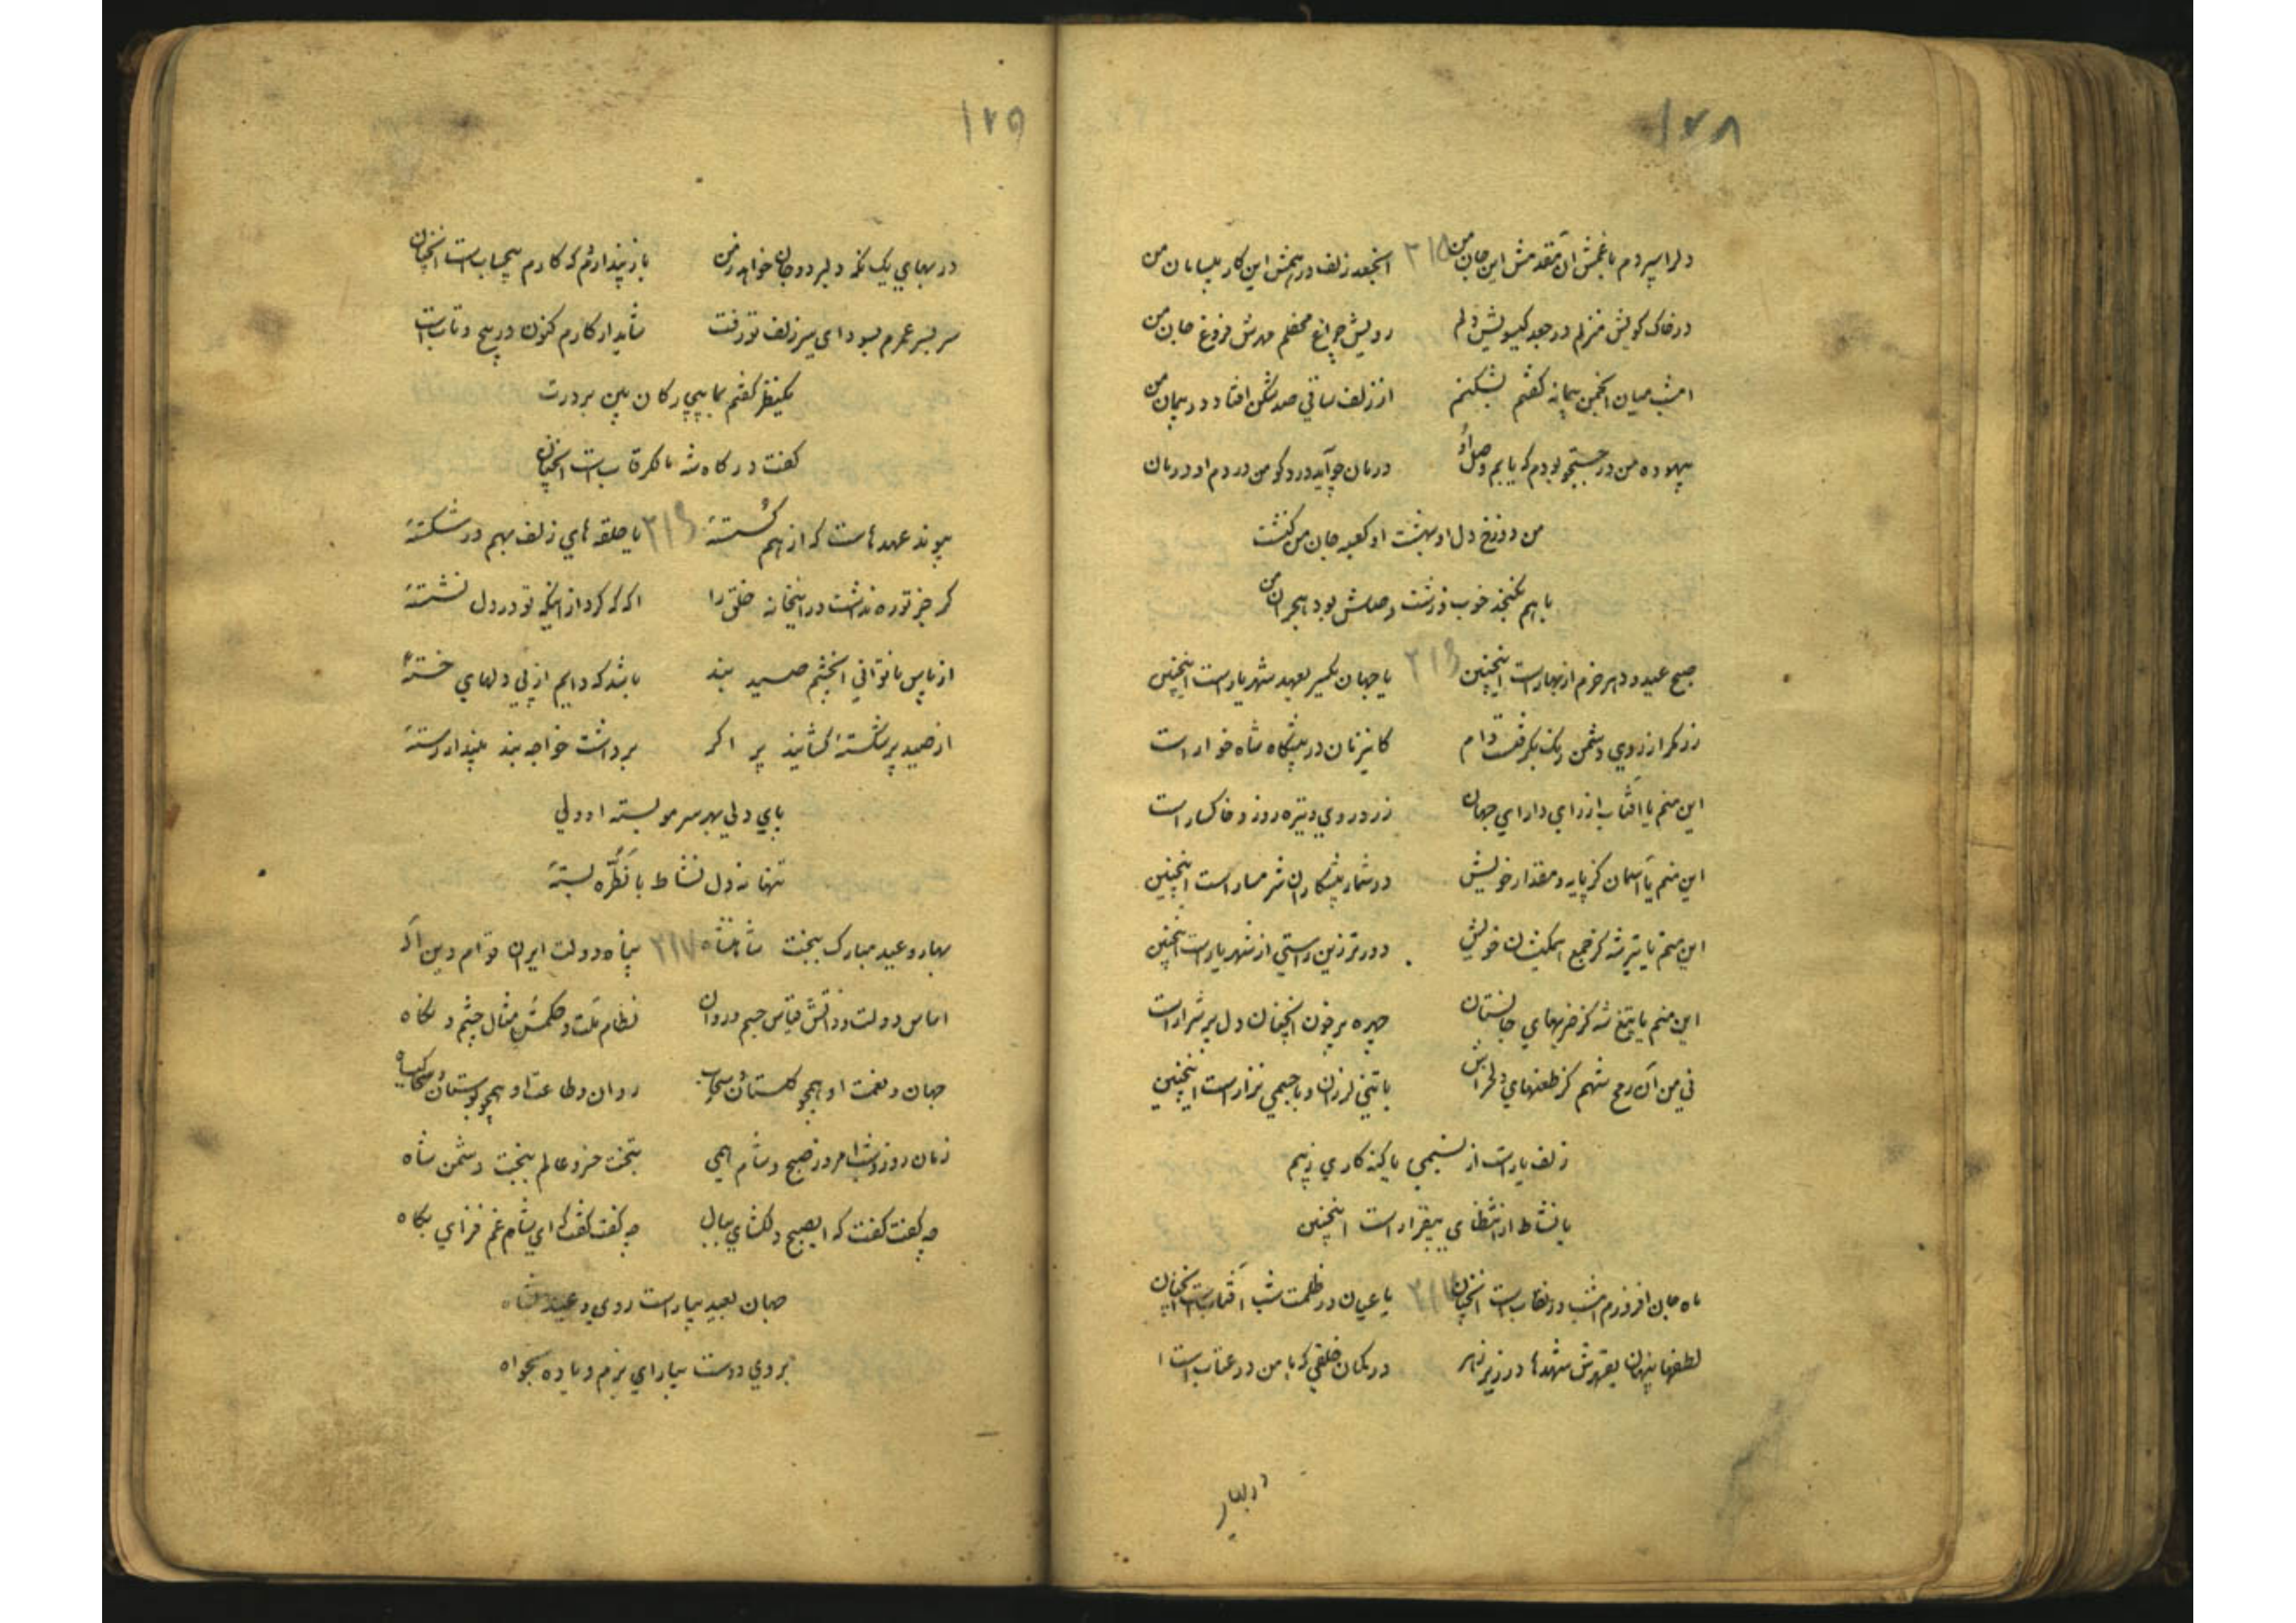 ۱۲۸
دلرا سپردم با غمش ان مقدمش این جان من ۲۱۵ انجعد زلف درهمش این کار بیسامان من
در خاک کویش منزلم در جعد کیسویش دلم رویش چراغ محفلم مهرش فروغ جان من
امشب میان انجمن پیمانه کفتم بشکنم از زلف ساقی صد شکن افتاد در پیمان من
بیهوده من در جستجو بودم که یابم وصل او درمان جو آید درد کو من دردم او درمان
من دوزخ دل او بهشت او کعبه جان من کنشت
با هم نکنجد خوب و زشت وصلش بود هجران من
صبح عید و دهر خرم از بهار است اینچنین ۲۱۶ یا جهان یکسر بعهد شهریار است اینچنین
زر مکر از روی دشمن رنک بکرفت وام کاینزنان در پیشکاه شاه خوار است
این منم یا آفتاب از رای دارای جهان زرد روی و تیره روز و خاکسار است
این منم یا آسمان کز پایه و مقدار خویش در شمار پیشکاران شرمسار است اینچنین
این منم یا تیر شه کز جمع همکیشان خویش دورتر زین راستی از شهریار است اینچنین
این منم یا تیغ شه کز ضربهای جانستان چهره پر خون انچنان دل پر شرار است
نی من آن رمح شهم کز طعنهای دلخراش با تنی لرزان و با جسمی نزار است اینچنین
زلف یار است از نسیمی یا کنه کاری ز بیم
یا نشاط از انتظاری بیقرار است اینچنین
ماه جان افروزم امشب در نقاب است انچنان یا عیان در ظلمت شب آفتاب است انچنان
لطفها پنهان بقهرش شهدها در زیر زهر در کمان خلقی که با من در عتاب است ا
در بهای
۱۲۹
در بهای یک نکه دلبر دو جان خواهد ز من باز پندارم که کارم بیحساب است انچنان
سر بسر عمرم بسودای سر زلف تو رفت شاید ار کارم کنون در پیچ و تاب است
یکنظر کفتم بما بیچارکان بین بر درت
کفت درکاه شه مالکرقاب است انچنان
پیوند عهدهاست که از هم کسستهٔ ۲۱۶ یا حلقه های زلف بهم در شکستهٔ
کر جز تو ره نداشت در اینخانه خلق را اکه که کرد از اینکه تو در دل نشستهٔ
از پاس ناتوانی انچشم صید بند باشد که دایم از پی دلهای خستهٔ
از صید پر شکستهٔ کشایند پر اکر برداشت خواجه بند مپندار رستهٔ
پای دلی بهر سر مو بسته او ولی
تنها نه دل نشاط بانطره بستهٔ
بهار و عید مبارک ببخت شاهنشاه ۲۱۷ پناه دولت ایران قوام دین آله
اساس دولت و ذاتش قیاس جسم و روان نظام ملت و حکمش مثال چشم و نکاه
جهان و نعمت او همچو کلستان و سحاب روان و طاعت او همچو بوستان و کیاه
زمان روز و شب امروز صبح و شام همی بتخت خسرو عالم ببخت دشمن شاه
چه کفت کفت که ایصبح دلکشای ببال چه کفت کفت که ای شام غم فزای بکاه
جهان بعید بیاراست روی و عید بشاه
بروی دوست بیارای بزم و باده بخواه